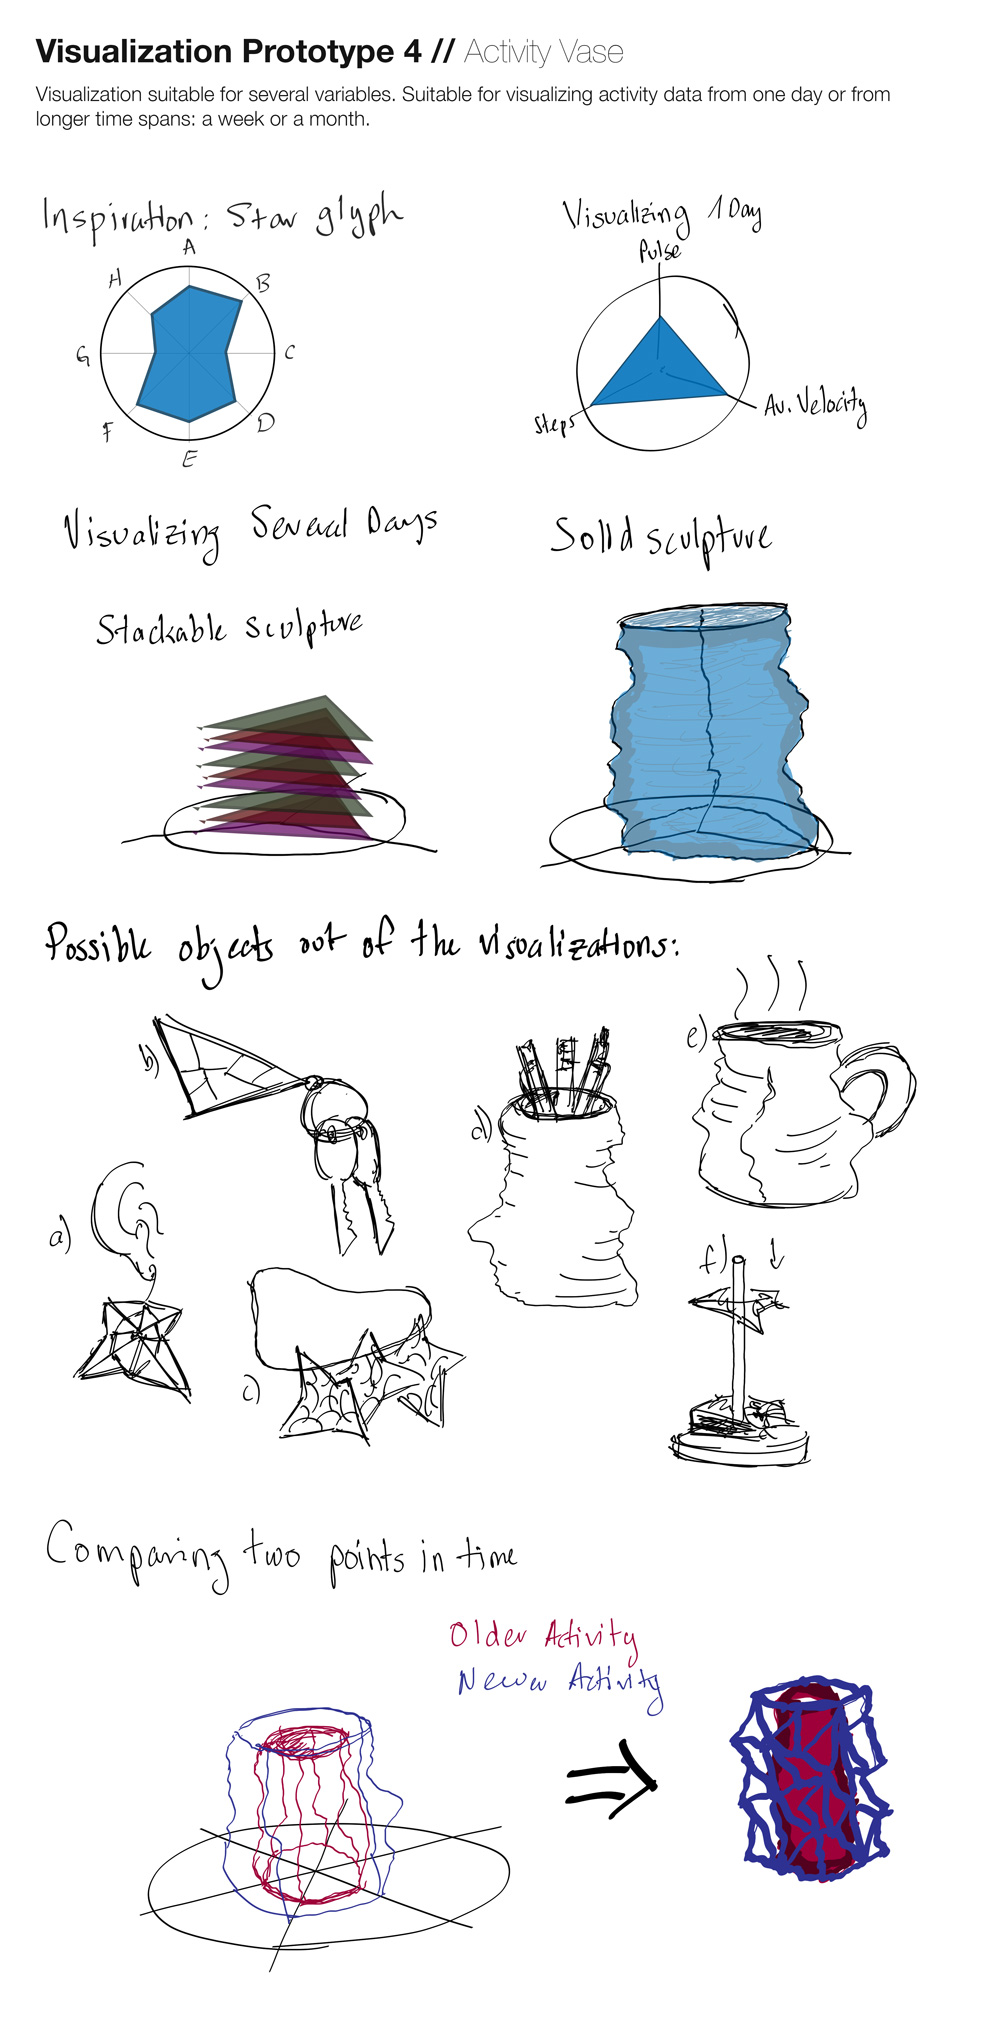 Visualization Prototype 4 // Activity Vase
Visualization suitable for several variables. Suitable for visualizing activity data from one day or from
longer time spans: a week or a month.
Inspiration: Star glyph
A
B
C
D
E
F
G
H
Visualizing 1 Day
Pulse
Av. Velocity
Steps
Visualizing Several Days
Stackable sculpture
Solid sculpture
Possible objects out of the visualizations:
a)
b)
c)
d)
e)
f)
Comparing two points in time
Older Activity
Newer Activity